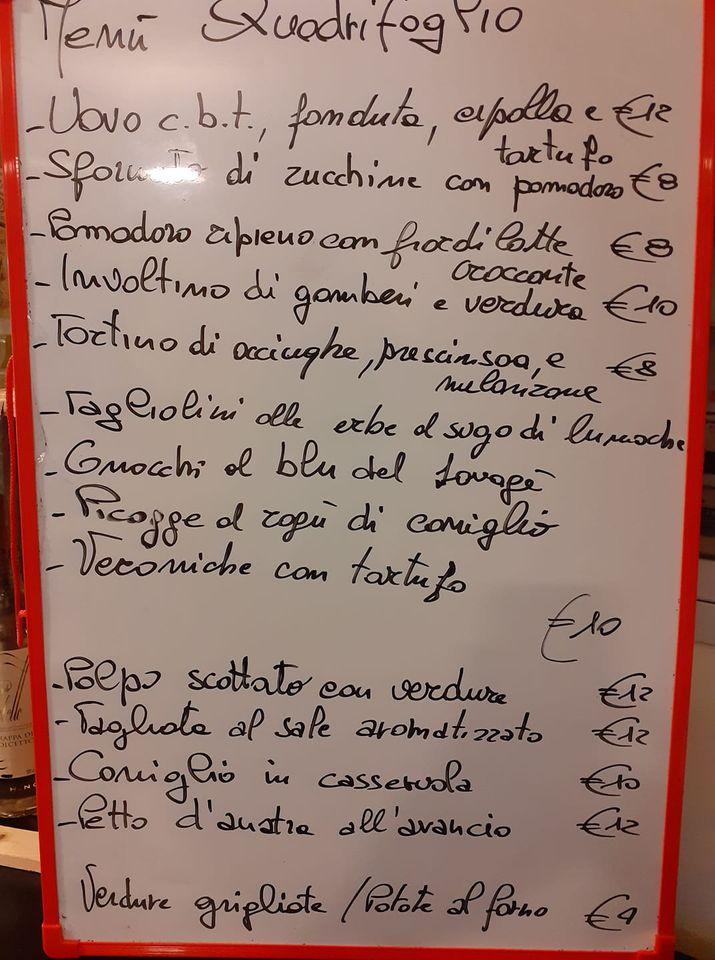 Menù Quadrifoglio
- Uovo c.b.t., fonduta, cipolla e €12
tartufo
- Sformato di zucchine con pomodoro €8
- Pomodoro ripieno con fiordilatte €8
croccante
- Involtino di gamberi e verdura €10
- Tortino di acciughe, prescinsoa, e €8
melanzane
- Tagliolini alle erbe al sugo di lumache
- Gnocchi al blu del
- Picagge al ragù di coniglio
- Veroniche con tartufo
€10
- Polpo scottato con verdure €12
- Tagliata al sale aromatizzato €12
- Coniglio in casseruola €10
- Petto d'anatra all'arancio €12
Verdure grigliate / Patate al forno €4